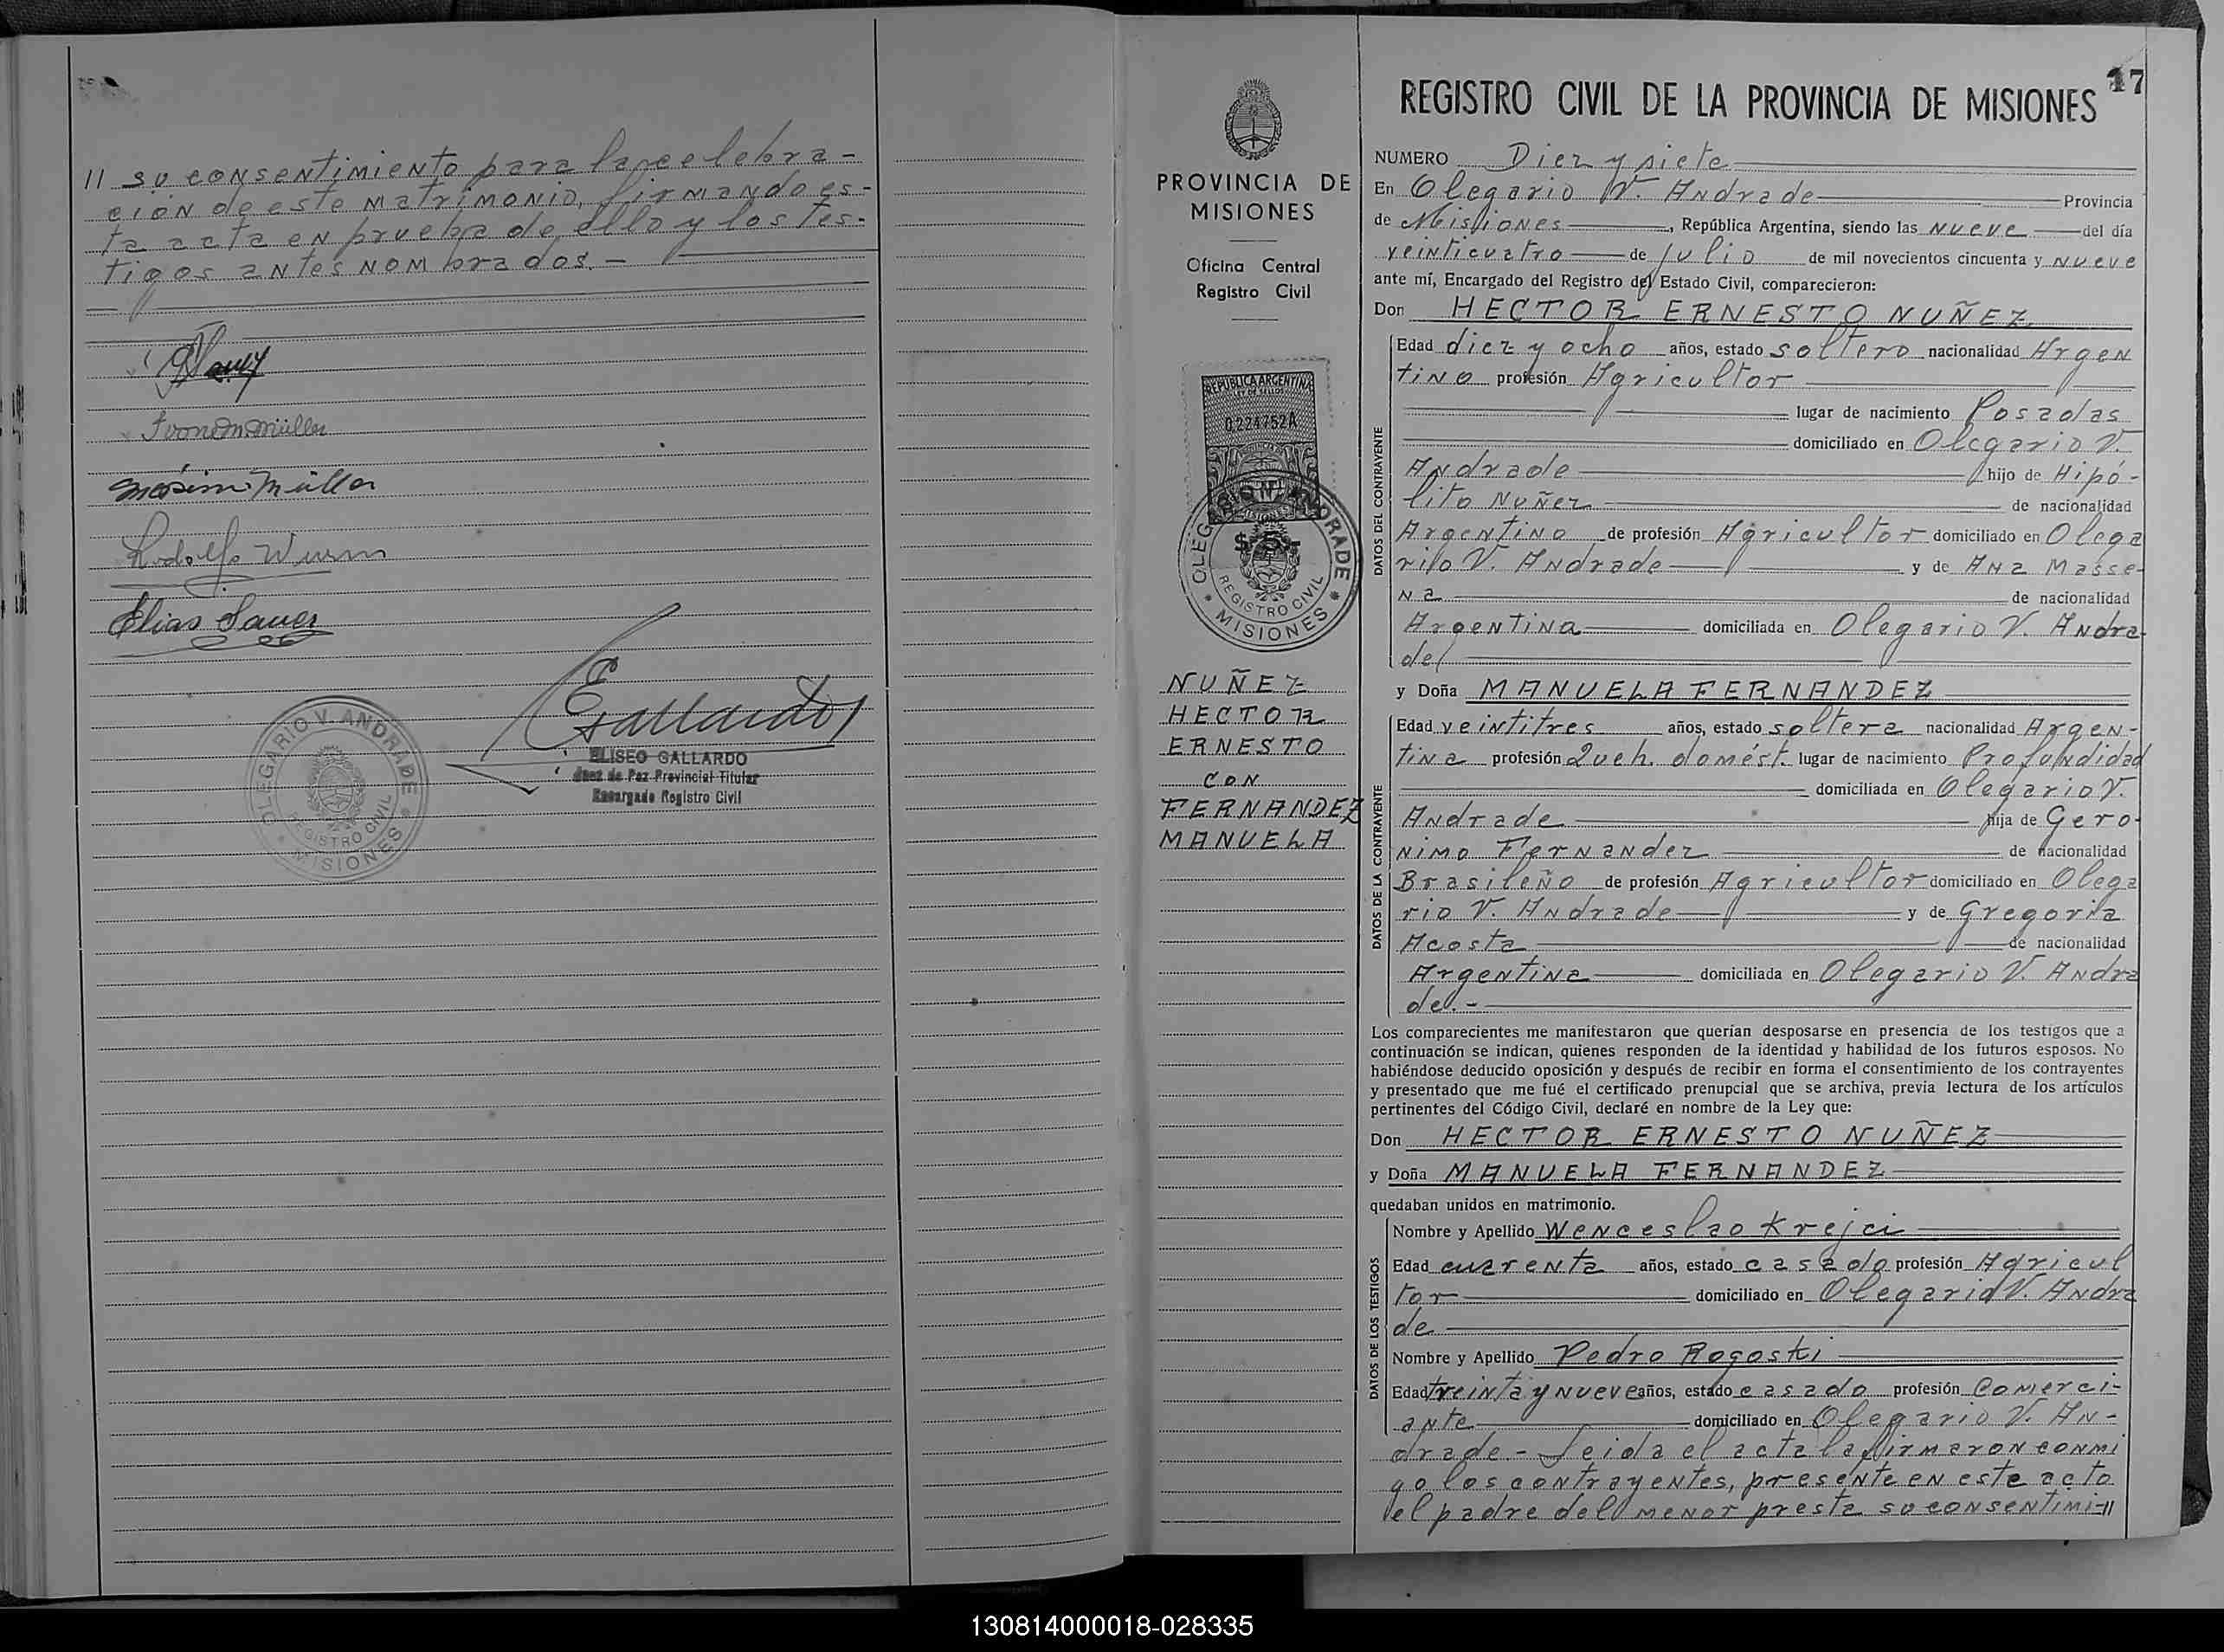 // su consentimiento para la celebra-
ción de este matrimonio, firmando es-
ta acta en prueba de ello y los tes-
tigos antes nombrados.-
Máximo Müller
Rodolfo Wurm
Elias Sauer
E Gallardo
OLEGARIO V. ANDRADE
REGISTRO CIVIL
* MISIONES *
ELISEO GALLARDO
Juez de Paz Provincial Titular
Encargado Registro Civil
PROVINCIA DE
MISIONES
Oficina Central
Registro Civil
REPUBLICA ARGENTINA
LEY DE SELLOS
0224752A
$ 5.-
OLEGARIO V. ANDRADE
REGISTRO CIVIL
* MISIONES *
NUÑEZ
HECTOR
ERNESTO
CON
FERNANDEZ
MANUELA
17
REGISTRO CIVIL DE LA PROVINCIA DE MISIONES
NUMERO Diez y siete
En Olegario V. Andrade Provincia
de Misiones, República Argentina, siendo las nueve del día
veinticuatro de julio de mil novecientos cincuenta y nueve
ante mí, Encargado del Registro del Estado Civil, comparecieron:
Don HECTOR ERNESTO NUÑEZ
DATOS DEL CONTRAYENTE
Edad diez y ocho años, estado soltero nacionalidad Argen
tino profesión Agricultor
lugar de nacimiento Posadas
domiciliado en Olegario V.
Andrade hijo de Hipó-
lito Nuñez de nacionalidad
Argentino de profesión Agricultor domiciliado en Olega
rio V. Andrade y de Ana Masse-
na de nacionalidad
Argentina domiciliada en Olegario V. Andra-
de
y Doña MANUELA FERNANDEZ
DATOS DE LA CONTRAYENTE
Edad veintitres años, estado soltera nacionalidad Argen-
tina profesión Queh. domést. lugar de nacimiento Profundidad
domiciliada en Olegario V.
Andrade hija de Gero-
nimo Fernandez de nacionalidad
Brasileño de profesión Agricultor domiciliado en Olega
rio V. Andrade y de Gregoria
Acosta de nacionalidad
Argentina domiciliada en Olegario V. Andra
de.-
Los comparecientes me manifestaron que querían desposarse en presencia de los testigos que a
continuación se indican, quienes responden de la identidad y habilidad de los futuros esposos. No
habiéndose deducido oposición y después de recibir en forma el consentimiento de los contrayentes
y presentado que me fué el certificado prenupcial que se archiva, previa lectura de los artículos
pertinentes del Código Civil, declaré en nombre de la Ley que:
Don HECTOR ERNESTO NUÑEZ
y Doña MANUELA FERNANDEZ
quedaban unidos en matrimonio.
DATOS DE LOS TESTIGOS
Nombre y Apellido Wenceslao Krejci
Edad cuarenta años, estado casado profesión Agricul
tor domiciliado en Olegario V. Andra
de
Nombre y Apellido Pedro Rogoski
Edad treinta y nueve años, estado casado profesión Comerci-
ante domiciliado en Olegario V. An-
drade.- Leida el acta la firmaron conmi
go los contrayentes, presente en este acto
el padre del menor presta su consentimi-//
130814000018-028335